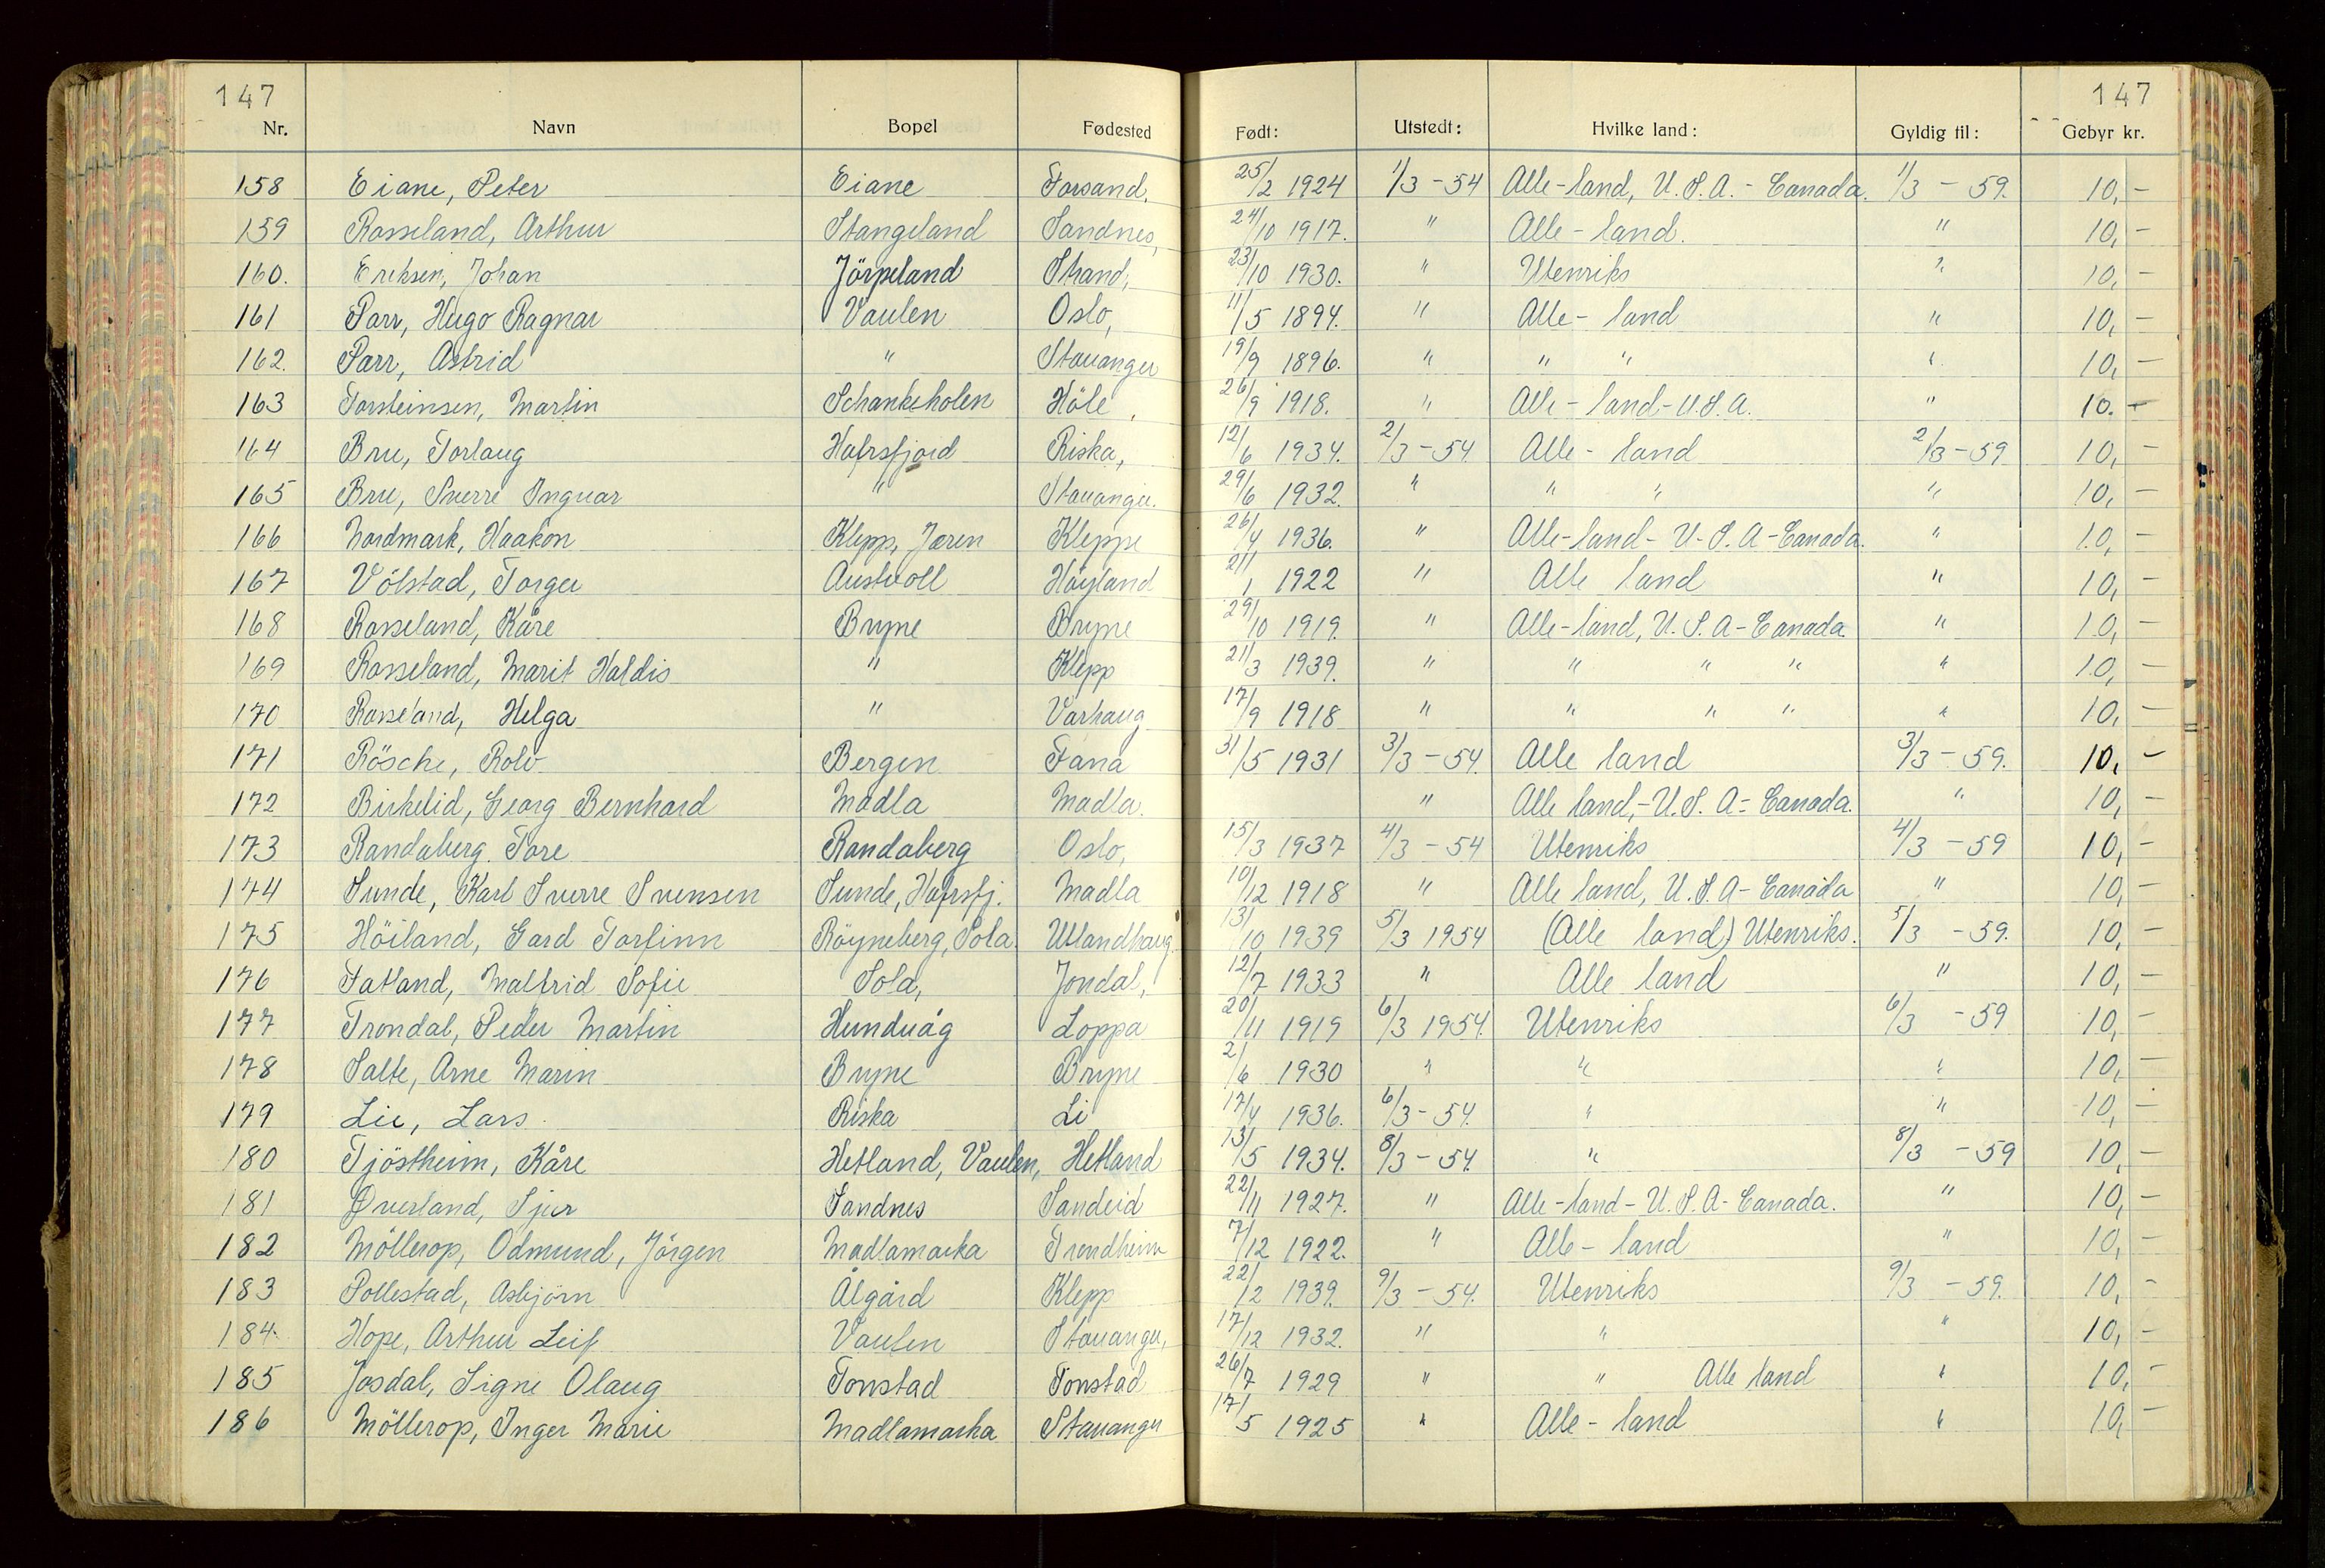 147 147
Nr. Navn Bopel Fødested Født: Utstedt: Hvilke land: Gyldig til: Gebyr kr.
158 Eiane, Peter Eiane Forsand, 25/2 1924 1/3 - 54 Alle-land, U.S.A. - Canada. 1/3 - 59. 10,-
159 Rosseland, Arthur Stangeland Sandnes, 24/10 1917. " Alle - land. " 10,-
160. Eriksen, Johan Jörpeland Strand, 23/10 1930. " Utenriks " 10,-
161 Parr, Hugo Ragnar Vaulen Oslo, 11/5 1894. " Alle - land " 10,-
162. Parr, Astrid " Stavanger 19/9 1896. " " " " 10,-
163 Torsteinsen, Martin Schankeholen Höle, 26/9 1918. " Alle - land - U.S.A. " 10.-
164 Bru, Torlaug Hafrsfjord Riska, 12/6 1934. 2/3 - 54 Alle - land 2/3 - 59 10,-
165 Bru, Sverre Ingvar " Stavanger. 29/6 1932. " " " " 10,-
166 Nordmark, Haakon Klepp, Jæren Kleppe 26/4 1936. " Alle-land - U.S.A - Canada. " 10,-
167 Völstad, Torger Austvoll Höyland 21/1 1922 " Alle land " 10,-
168 Rosseland, Kåre Bryne Bryne 29/10 1919. " Alle-land, U.S.A - Canada " 10,-
169 Rosseland, Marit Haldis " Klepp 21/3 1939. " " " " " 10,-
170 Rosseland, Helga " Varhaug 17/9 1918 " " " " " 10,-
171 Rösche, Rolv Bergen Fana 31/5 1931 3/3 - 54. Alle land 3/3 - 59. 10,-
172 Birkelid, Georg Bernhard Madla Madla. " Alle land, - U.S.A - Canada. " 10,-
173 Randaberg. Tore Randaberg Oslo, 15/3 1937 4/3 - 54 Utenriks 4/3 - 59 10,-
174 Sunde, Karl Sverre Svensen Sunde, Hafrsfj. Madla 10/12 1918 " Alle land, U.S.A - Canada " 10,-
175 Höiland, Gard Torfinn Röyneberg, Sola Ullandhaug. 13/10 1939 5/3 1954 (Alle land) Utenriks. 5/3 - 59. 10,-
176 Fatland, Malfrid Sofie Sola, Jondal, 12/7 1933 " Alle land " 10,-
177 Trondal, Peder Martin Hundvåg Loppa 20/11 1919 6/3 1954. Utenriks 6/3 - 59 10,-
178 Salte, Arne Marin Bryne Bryne 2/6 1930 " " " 10,-
179 Lie, Lars Riska Li 17/4 1936. 6/3 - 54. " " 10,-
180 Tjöstheim, Kåre Hetland, Vaulen, Hetland 13/5 1934. 8/3 - 54. " 8/3 - 59 10,-
181 Øverland, Sjur Sandnes Sandeid 22/11 1927. " Alle-land - U.S.A - Canada. " 10,-
182 Möllerop, Odmund, Jörgen Madlamarka Trondheim 7/12 1922. " Alle - land " 10,-
183 Pollestad, Asbjörn Ålgård Klepp 22/12 1939. 9/3 - 54. Utenriks 9/3 - 59. 10,-
184. Hope, Arthur Leif Vaulen Stavanger, 17/12 1932. " " " 10,-
185 Josdal, Signe Olaug Tonstad Tonstad 26/7 1929 " " Alle land " 10,-
186 Möllerop, Inger Marie Madlamarka Stavanger 17/5 1925 " Alle - land " 10,-